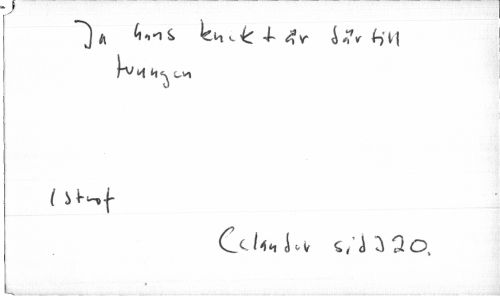 Ja hans knekt är därtill
tvungen
1 strof
Celander sid 320.